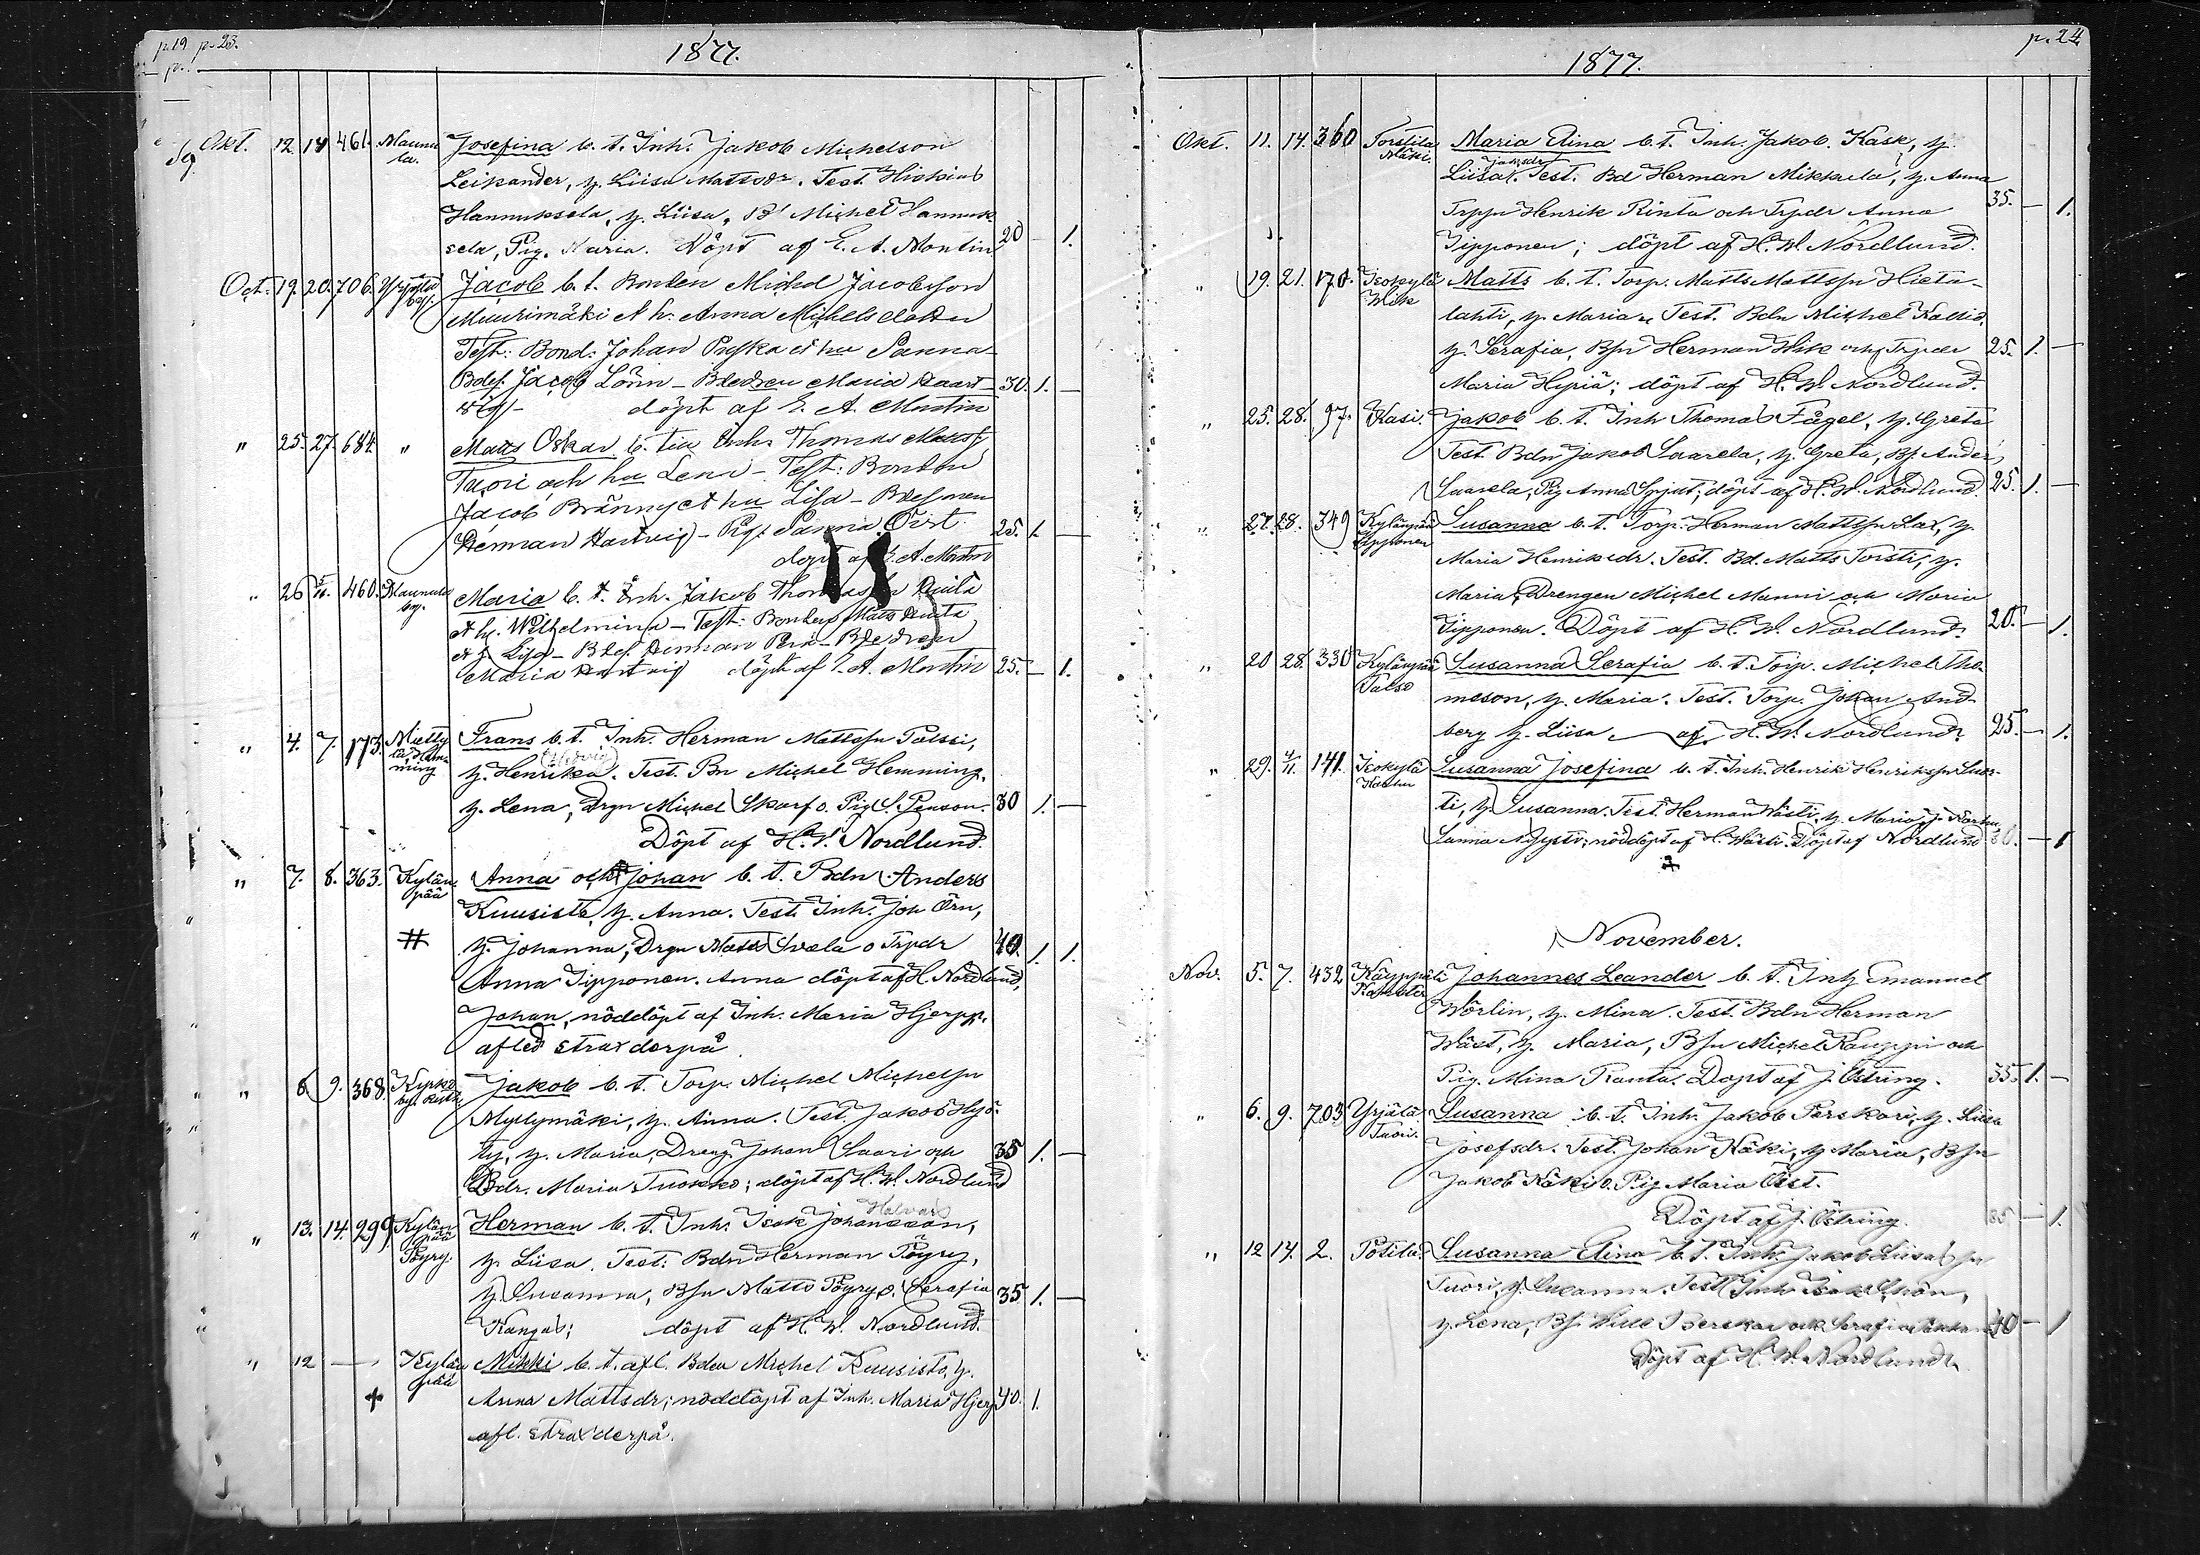 p. 19 p. 23.
1877.
Okt. 12. 14 461. Maunu
la.
Josefina b. t. Inh. Jakob Michelson
Leikander, h. Liisa Mattsdr. Test. Hiskias
Hannuksela, h. Liisa, Bs Michel Hannuk
sela, Pig. Maria. Döpt af E. A. Montin 20 — 1.
Oct. 19. 20. 706. Yrjälä
by.
Jacob b. t. Bonden Michel Jacobsson
Muurimäki et h. Anna Michelsdotter
Test: Bond. Johan Prysska et hu Sanna —
Bdes. Jacob Lönn — Bdedren Maria Haart- 30. 1. —
vig — döpt af E. A. Montin
" 25. 27. 684. "
Matts Oskar b. till Inh. Thomas Matss.
Tuori och hu Lena — Test: Bonden
Jacob Bränny et hu Lisa — Bdesonen
Herman Hartvig — Pig. Sanna Qvist. 25. 1 —
döpt af E. A. Montin
" 26 460. Maunula
by.
Maria b. t. Inh. Jakob Thomass.
et h. Wilhelmina — Test: Bonden Matts
et h Lisa — Bdes. Herman — Bdedren
Maria Hartvig döpt af E. A. Montin 25. — 1.
" 4. 7. 173. Mietty
lä, Hem-
ming
Frans b. t. Inh. Herman Mattsson Palssi,
h. Henrika. Test. Bn Michel Hemming,
h. Lena, Drgn Michel Skarf o. Pig S. Penson. 30 1. —
Döpt af H. W. Nordlund.
" 7. 8. 363. Kylän
pää
Anna och Johan b. t. Bdn Anders
Kuusisto, h. Anna. Test. Inh. Joh Örn,
# h. Johanna, Drgn Matts o Trpdr 40. 1. 1.
Anna Tipponen. Anna döpt af H. Nordlund,
Johan, nöddöpt af Inh. Maria Hjerpp.
afled strax derpå
" 8. 9. 368. Kypkä
by.
Jakob b. t. Torp. Michel Michelsn
Myllymäki, h. Anna. Test. Jakob Hyö-
ty, h. Maria, Dreng Johan Saari och 35 1. —
Bdr. Maria Tuokko; döpt af H. W. Nordlund
" 13. 14. 299. Kylän
pää
Pöyry.
Halvars
Herman b. t. Inh. Isak Johansson,
h. Liisa. Test: Bdn Herman Pöyry,
h. Susanna, Bsn Matts Pöyry o. Serafia 35 1. —
Kangas; döpt af H. W. Nordlund.
" 12 — — Kylän
pää
Mikki b. t. afl. Bdn Michel Kuusisto, h.
+ Anna Mattsdr; nöddöpt af Inh. Maria Hjerp 40. 1.
afl. strax derpå.
p. 24
1877.
Okt. 11. 14. 360 Torstila
Mäki.
Maria Elina b. t. Inh. Jakob Kask, h.
Jaksdr
Liisa. Test. Bd Herman Mikkila, h. Anna
Trpn Henrik Rinta och Trpdr Anna 35. — 1.
Tipponen; döpt af H. W. Nordlund.
" 19. 21. 170. Isokylä
Wik
Matts b. t. Torp. Matts Mattssn Hieta-
lahti, h. Maria. Test. Bdn Michel Kallio,
h. Serafia, Bsn Herman Wik och Trpdr 25. 1. —
Maria Hyriä; döpt af H. W. Nordlund.
" 25. 28. 97. Kasi.
Jakob b. t. Inh Thomas Fågel, h. Greta
Test. Bdn Jakob Saarela, h. Greta, Bs Anders
Saarela, Pig Anna Spjut; döpt af H. W. Nordlund. 25. 1. —
" 27. 28. 349 Kylänpää
Tipponen
Susanna b. t. Torp. Herman Mattssn Lax, h.
Maria Henriksdr. Test. Bd. Matts Torsti, h.
Maria, Drengen Michel Manni och Maria
Tipponen. Döpt af H. W. Nordlund. 20. — 1.
" 20 28. 330 Kylänpää
Talso
Susanna Serafia b. t. Torp. Michel Tho-
meson, h. Maria. Test. Torp. Johan And-
berg h. Liisa — af H. W. Nordlund. 25 — 1.
" 29. 4/11. 141. Isokylä
Susanna Josefina b. t. Inh. Henrik Henrikssn Luos-
ti, h. Susanna. Test. Herman Wästi, h. Maria, J.
Sanna; nöddöpt af H. Wästi. Döpt af Nordlund — 1
November.
Nov. 5. 7. 432 Käyppälä
Johannes Leander b. t. Inh Emanuel
Wörlin, h. Mina. Test. Bdn Herman
Wäst, h. Maria, Bsn Michel Kauppi och
Pig. Mina Ranta. Döpt af J. Östring. 35. 1. —
" 6. 9. 703 Yrjälä
Tuori.
Susanna b. t. Inh. Jakob Porskari, h. Liisa
Josefsdr. Test. Johan Käki, h Maria, Bsn
Jakob Käki o. Pig Maria Qvist.
Döpt af J. Östring. 35 — 1.
" 12 14. 2. Potila.
Susanna Elina b. t. Inh. Jakob
Tuori, h. Susanna. Test Inh Isak
h. Lena, Bs. och Serafia 40 — 1
Döpt af H. W. Nordlund.